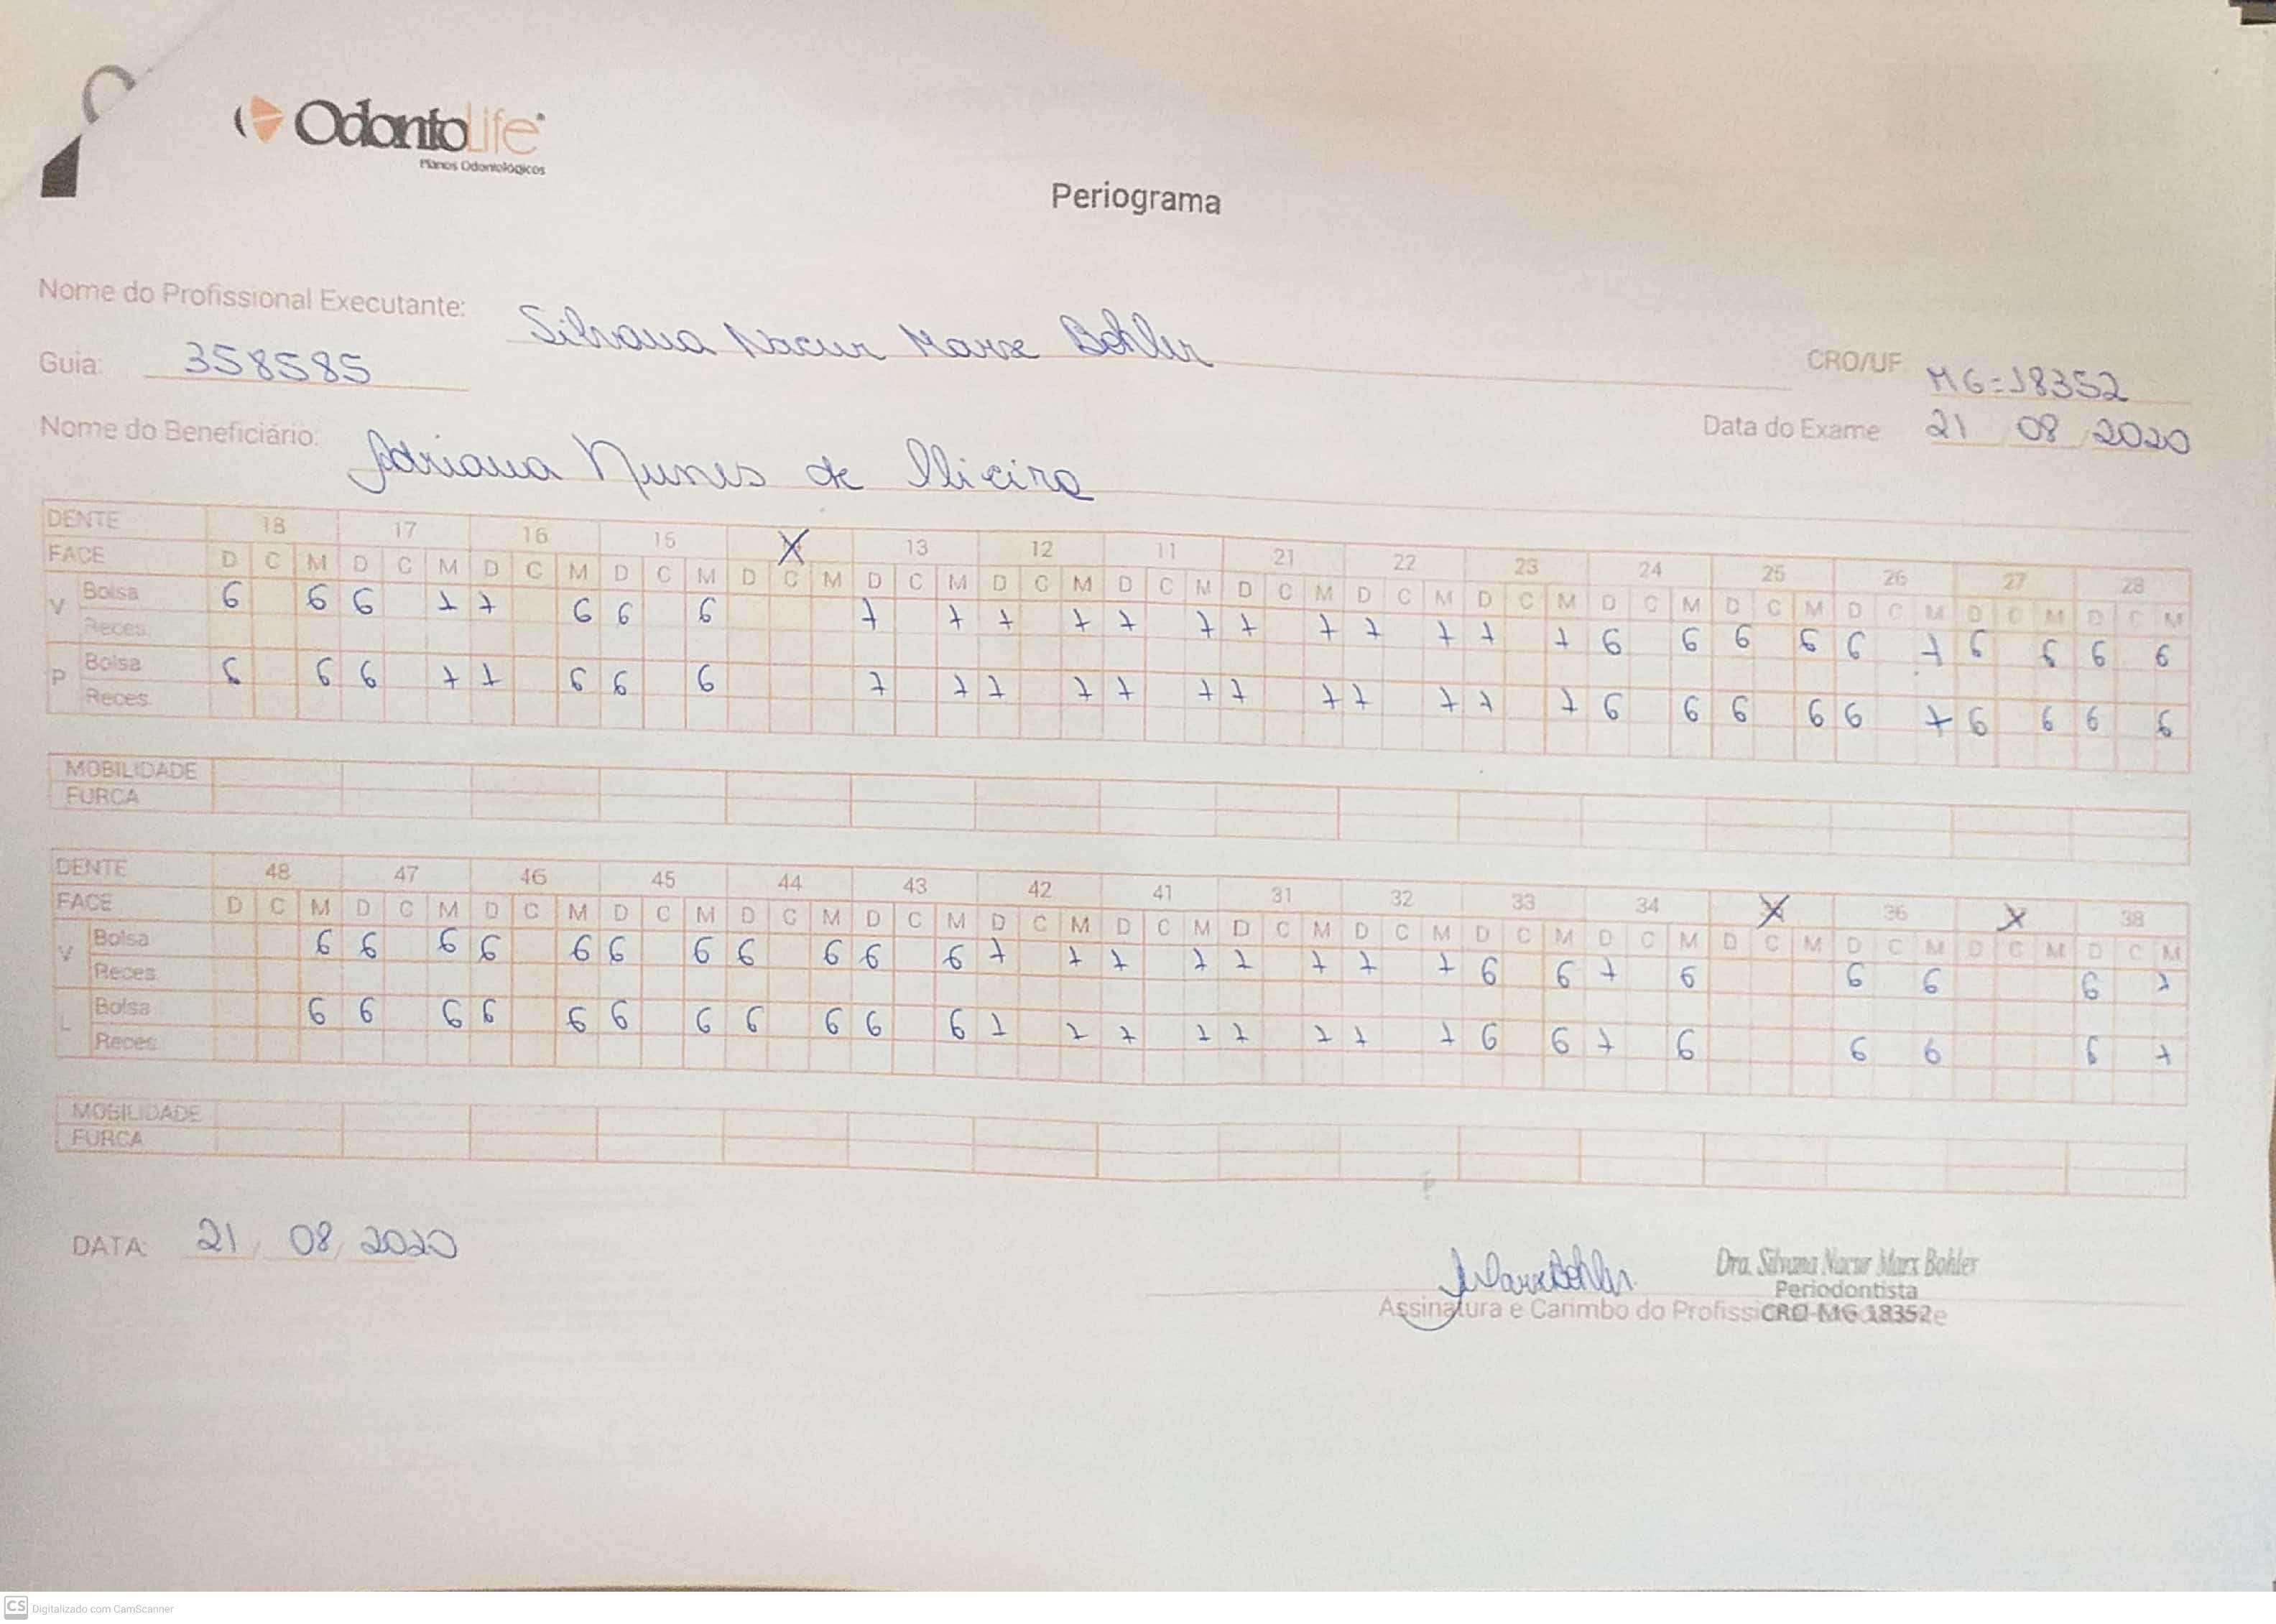 OdontoLife
Planos Odontológicos
Periograma
Nome do Profissional Executante: Silvana Nacur Marx Bohler
CRO/UF MG=18352
Guia: 358585
Data do Exame 21 08 2020
Nome do Beneficiário: Adriana Nunes de Oliveira
DENTE 18 17 16 15 X 13 12 11 21 22 23 24 25 26 27 28
FACE D C M D C M D C M D C M D C M D C M D C M D C M D C M D C M D C M D C M D C M D C M D C M D C M
V Bolsa 6 6 6 7 7 6 6 6 7 7 7 7 7 7 7 7 7 7 7 7 6 6 6 6 6 7 6 6 6 6
Reces.
P Bolsa 6 6 6 7 7 6 6 6 7 7 7 7 7 7 7 7 7 7 7 7 6 6 6 6 6 7 6 6 6 6
Reces.
MOBILIDADE
FURCA
DENTE 48 47 46 45 44 43 42 41 31 32 33 34 X 36 X 38
FACE D C M D C M D C M D C M D C M D C M D C M D C M D C M D C M D C M D C M D C M D C M D C M D C M
V Bolsa 6 6 6 6 6 6 6 6 6 6 6 7 7 7 7 7 7 7 7 6 6 7 6 6 6 6 7
Reces.
L Bolsa 6 6 6 6 6 6 6 6 6 6 6 7 7 7 7 7 7 7 7 6 6 7 6 6 6 6 7
Reces.
MOBILIDADE
FURCA
DATA: 21 / 08 / 2020
MarxBohler
Dra. Silvana Nacur Marx Bohler
Periodontista
CRO-MG 18352
Assinatura e Carimbo do
CS Digitalizado com CamScanner